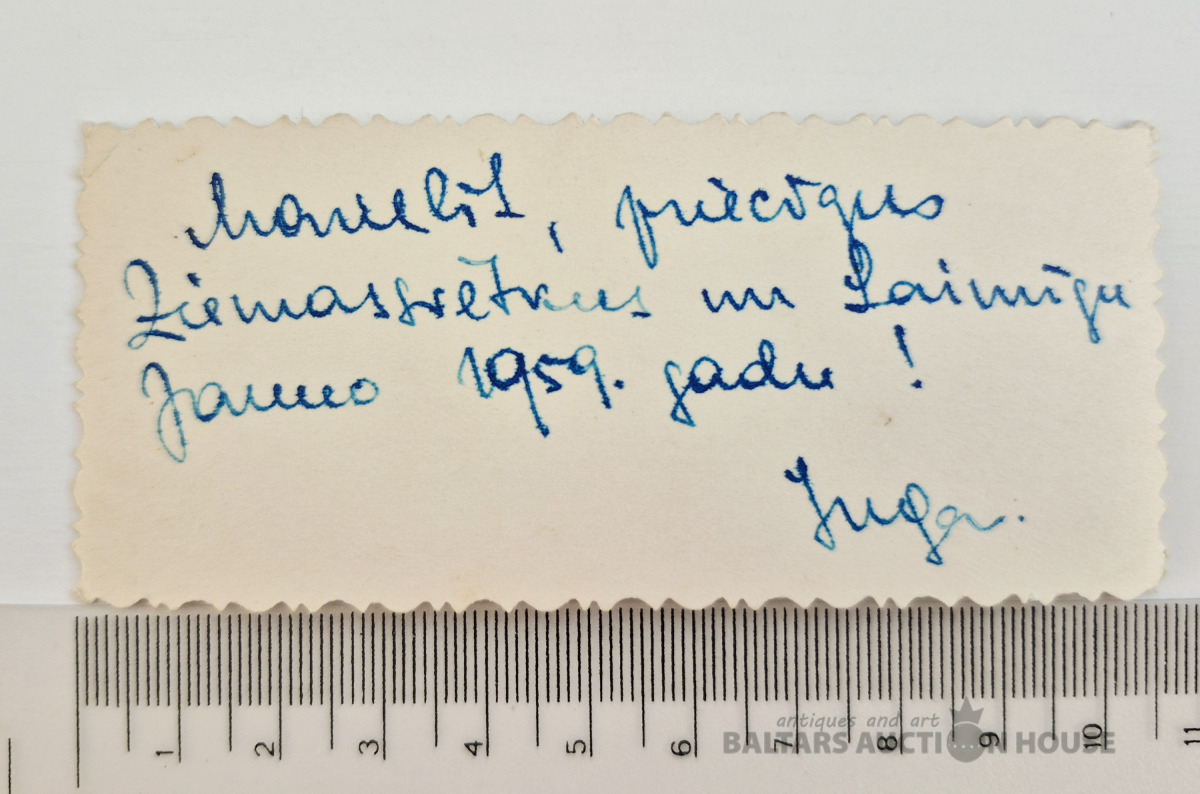 priecīgus
Ziemassvētkus un Laimīgu
Jauno 1959. gadu !
Inga.
1 2 3 4 5 6 7 8 9 10 11
antiques and art
BALTARS AUCTION HOUSE